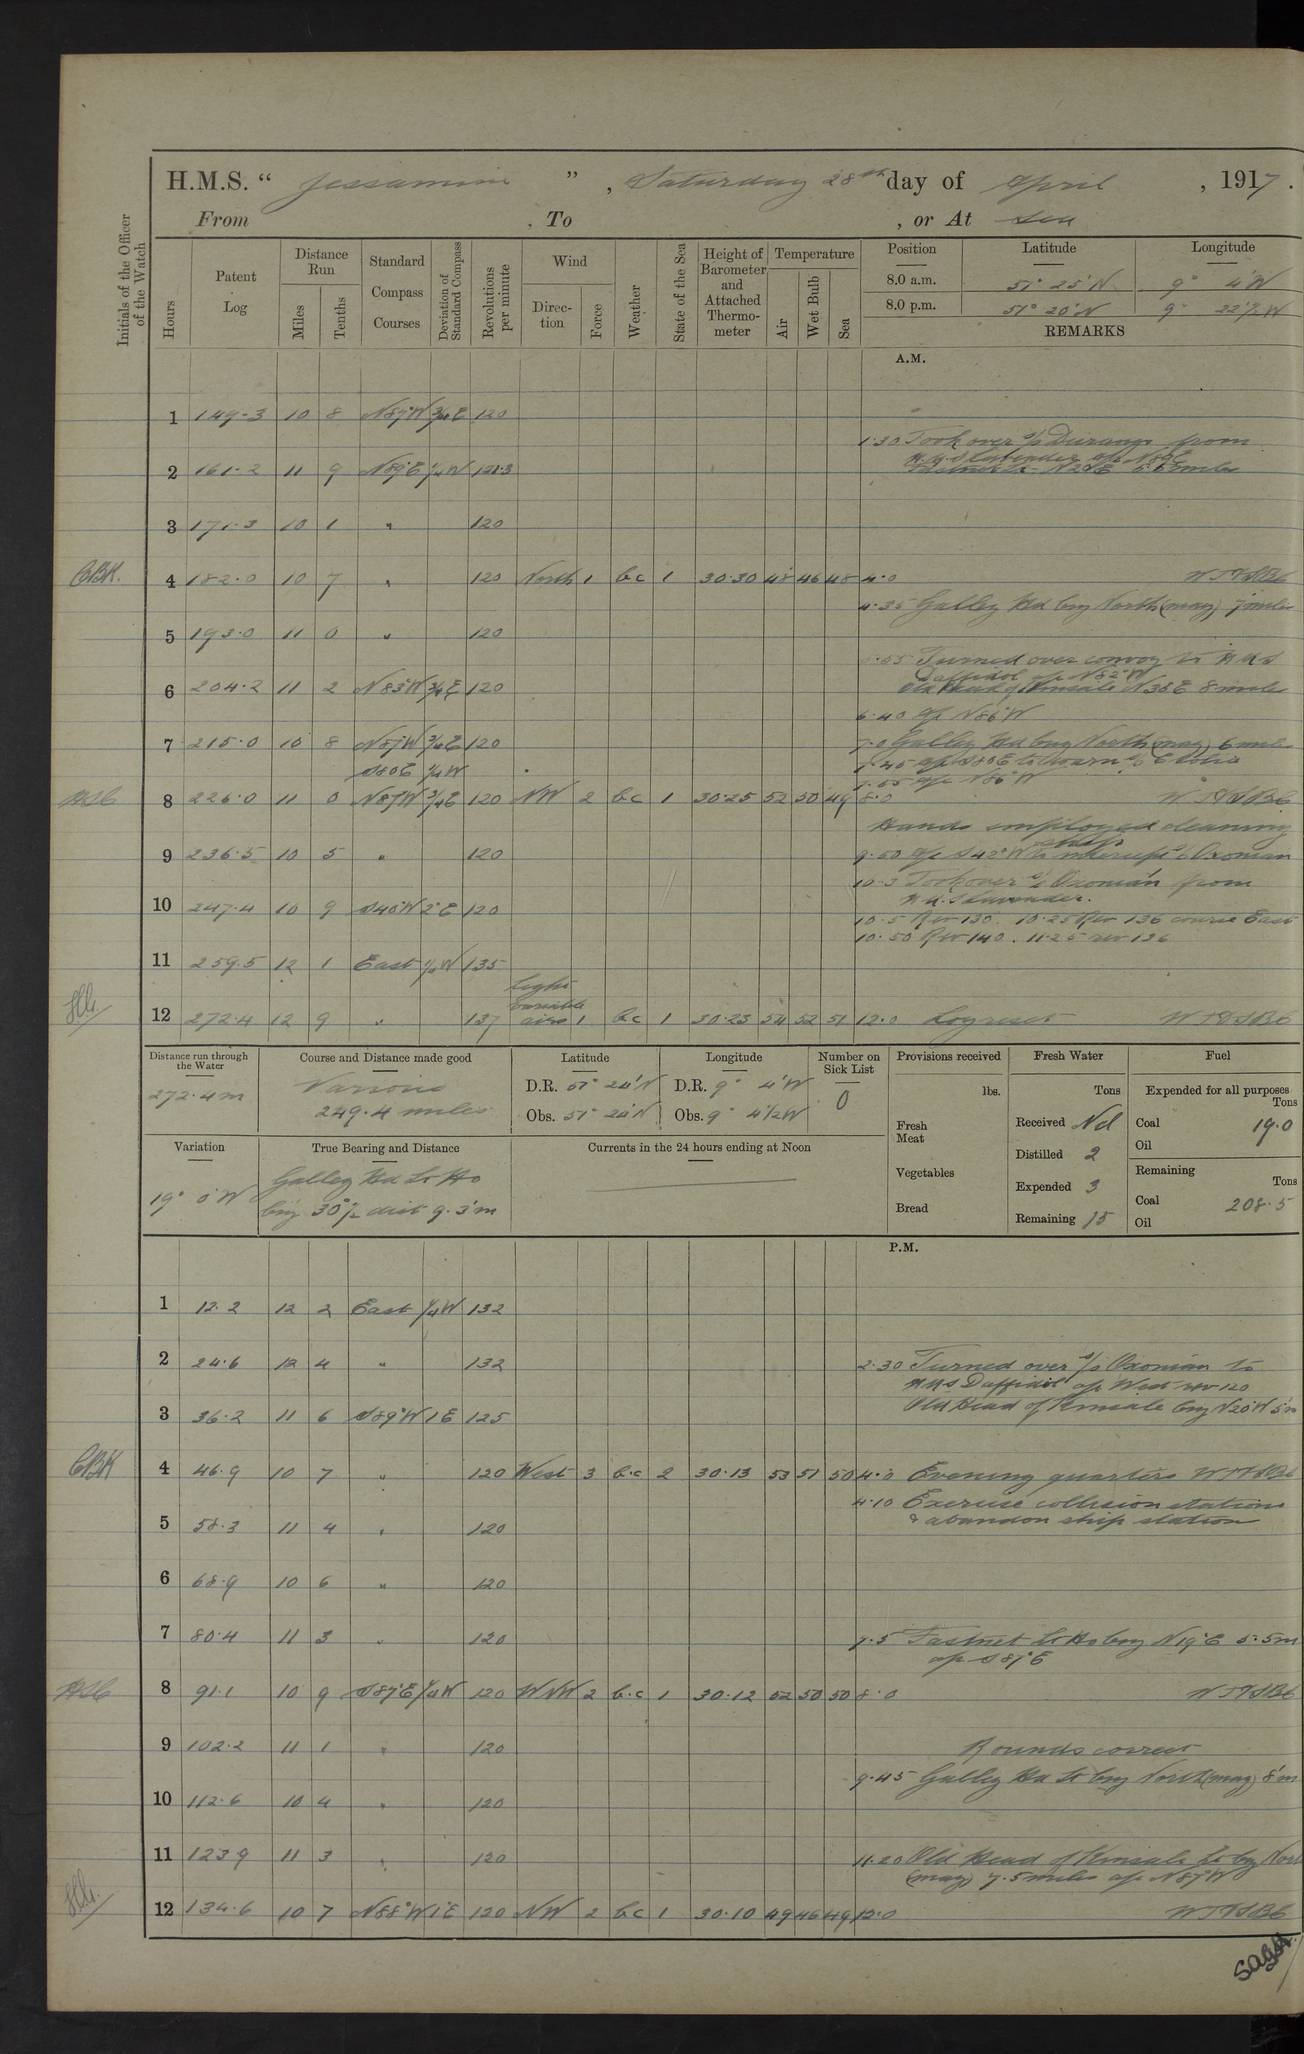 H.M.S. “ Jessamine ” , Saturday 28th day of April , 1917 .
From , To , or At Sea
Initials of the Officer of the Watch
Hours
Patent Log
Distance Run
Miles
Tenths
Standard Compass Courses
Deviation of Standard Compass
Revolutions per minute
Wind
Direction
Force
Weather
State of the Sea
Height of Barometer and Attached Thermometer
Temperature
Air
Wet Bulb
Sea
Position Latitude Longitude
8.0 a.m. 51° 25'N 9° 4'W
8.0 p.m. 51° 20'N 9° 22½'W
REMARKS
A.M.
1 149.3 10 8 N87°W ¾E 120
1.30 Took over s/s Durango from
H.M.S Lavender a/c N89°E
2 161.2 11 9 N89°E ¼W 121.3 N20°E 6.6 miles
3 171.3 10 1 " 120
CBK. 4 182.0 10 7 " 120 North 1 b.c 1 30.30 48 46 48 4.0
4.35 Galley Hd brg North (mag) 7 miles
5 193.0 11 0 " 120
5.55 Turned over convoy to HMS
Daffidol a/c N82°W
6 204.2 11 2 N83°W ¾E 120 Old Head of Kinsale N35°E 8 miles
6.40 a/c N86°W
7 215.0 10 8 N87°W ¾E 120 7.0 Galley Hd brg North (mag) 6 miles
S80E ¼W 7.45 a/c S80E to warn s/s
7.55 a/c N86°W
8 226.0 11 0 N87°W ¾E 120 NW 2 b.c 1 30.25 52 50 49 8.0
Hands employed cleaning
ship
9 236.5 10 5 " 120 9.50 a/c S42°W to intercept s/s Oxonian
10.3 Took over s/s Oxonian from
H.M.S Lavender.
10 247.4 10 9 S40°W 2°E 120
10.5 Rev 130. 10.25 Rev 136 course East
10.50 Rev 140. 11.25 rev 136
11 259.5 12 1 East ¼W 135
Light
variable
12 272.4 12 9 " 137 airs 1 b.c 1 30.23 54 52 51 12.0 Log reset
Distance run through the Water
272.4m
Course and Distance made good
Various
249.4 miles
Latitude
D.R. 51° 24'N
Obs. 51° 24'N
Longitude
D.R. 9° 4'W
Obs. 9° 4½W
Number on Sick List
0
Provisions received
lbs.
Fresh Meat
Vegetables
Bread
Fresh Water
Tons
Received Nil
Distilled 2
Expended 3
Remaining 15
Fuel
Expended for all purposes
Tons
Coal 19.0
Oil
Remaining
Tons
Coal 208.5
Oil
Variation
19° 0'W
True Bearing and Distance
Galley Hd Lt Ho
brg 30°½ dist 9.3'm
Currents in the 24 hours ending at Noon
P.M.
1 12.2 12 2 East ¼W 132
2 24.6 12 4 " 132 2.30 Turned over s/s Oxonian to
HMS Daffidol a/c West rev 120
3 36.2 11 6 S89°W 1E 125 Old Head of Kinsale brg N20°W 5'm
CBK 4 46.9 10 7 " 120 West 3 b.c 2 30.13 53 51 50 4.0 Evening quarters
4.10 Exercise collision stations
& abandon ship station
5 58.3 11 4 " 120
6 68.9 10 6 " 120
7 80.4 11 3 " 120 7.5 Fastnet Lt Ho brg N19°E 5.5m
a/c S87°E
8 91.1 10 9 S87°E ¼W 120 WNW 2 b.c 1 30.12 52 50 50 8.0
9 102.2 11 1 " 120 Rounds correct
9.45 Galley Hd Lt brg North (mag) 8'm
10 112.6 10 4 " 120
11 123.9 11 3 " 120 11.20 Old Head of Kinsale Lt brg
(mag) 7.5 miles a/c N87°W
12 134.6 10 7 N88°W 1°E 120 NW 2 b.c 1 30.10 49 46 49 12.0